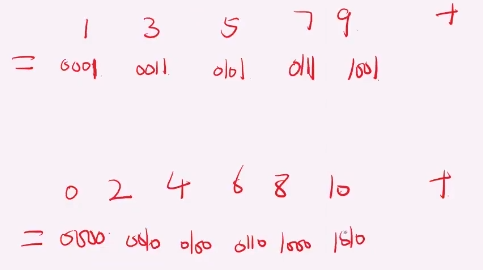 1 3 5 7 9 +
= 0001 0011 0101 0111 1001
0 2 4 6 8 10 +
= 0000 0010 0100 0110 1000 1010